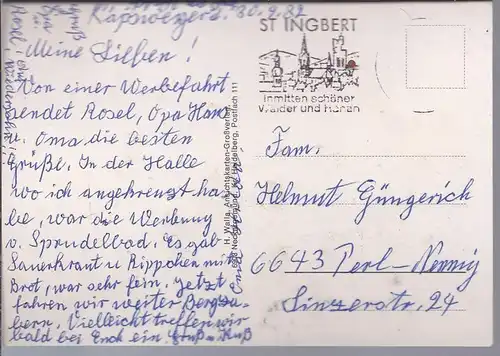 Kapsweyer d. 30.9.82
Meine Lieben!
Von einer Werbefahrt
sendet Rosel, Opa Hans
u. Oma die besten
Grüße. In der Halle
wo ich angekreuzt ha
be, war die Werbung
v. Sprudelbad. Es gab
Sauerkraut u. Rippchen mit
Brot, war sehr fein. Jetzt
fahren wir weiter Bergza-
bern. Vielleicht treffen wir
bald bei Euch ein Gruß u. Kuß
H. Walla, Ansichtskarten-Großverlag
Heidelberg, Postfach 111
ST INGBERT
inmitten schöner
Wälder und Höhen
Fam.
Helmut Güngerich
6643 Perl-Nennig
Sinzerstr. 24